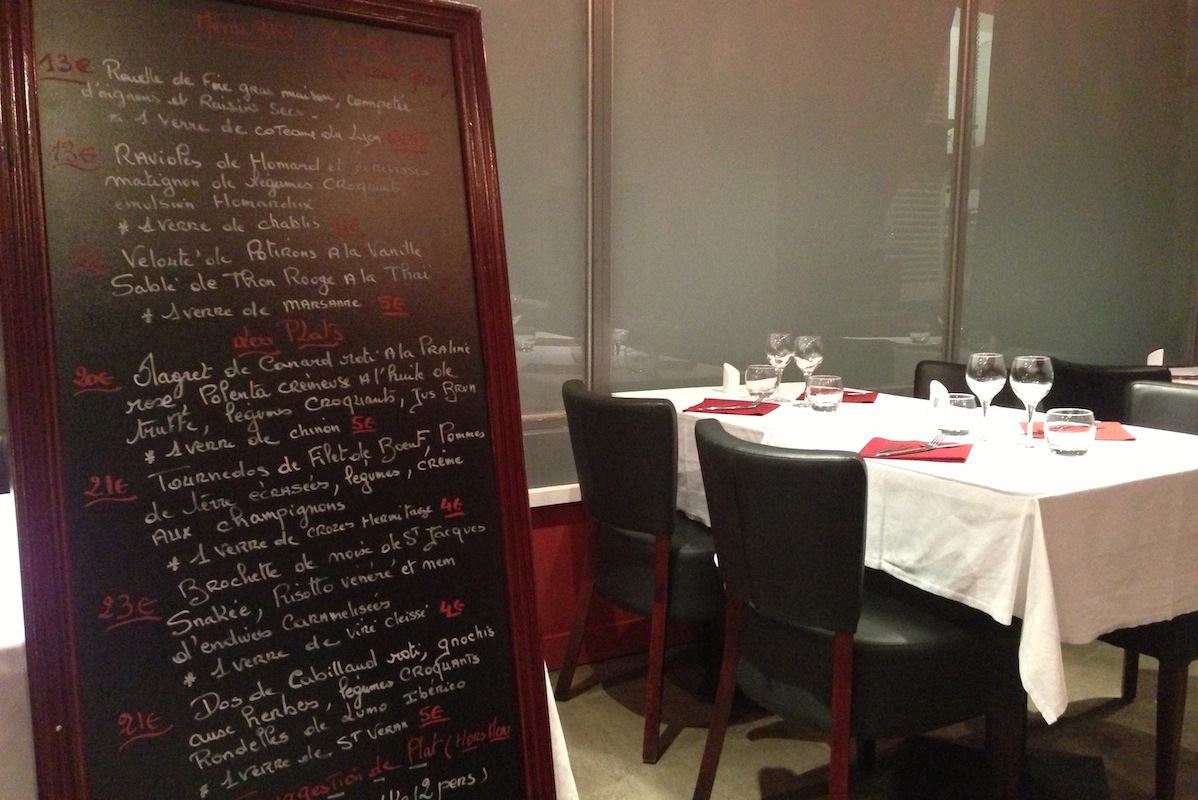 Menu
13€ Rouelle de Foie gras maison, compotée
d'oignons et Raisins Secs.
* 1 verre de coteaux du Lyon
13€ RAVioles de Homard et écrevisses
matignon de légumes CROQuants,
émulsion Homardux
* 1 verre de chablis
Velouté de Potirons A la Vanille
Sablé de Thon Rouge A la Thaï
* 1 verre de MARSANNE 5€
Les Plats
20€ Magret de Canard roti A la PRAline
rose, Polenta CRémeuse A l'huile de
truffe, légumes CROQuants, Jus BRun
* 1 verre de chinon 5€
21€ Tournedos de Filet de Boeuf, Pommes
de terre écrasées, légumes, crème
Aux champignons
* 1 verre de crozes Hermitage 4€
23€ Brochette de noix de St Jacques
Snakée, Risotto vénéré et nem
d'endives caramelisées
* 1 verre de viré cleissé 4€
21€ Dos de Cabillaud roti, gnochis
aux herbes, légumes CROQuants
Rondelles de Lomo Ibérico
* 1 verre de ST Veran 5€
Suggestion de Plat (Hors Menu
2 pers)